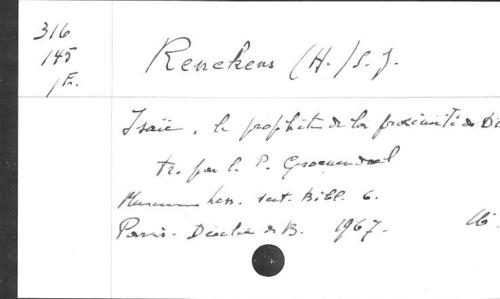 316
145
1 Fr.
Renckens (H.) s.j.
Isaïe, le prophète de la proximité de Di
tr. par le P. Groenendael
Museum less. sect. Bibl. 6.
Paris - Desclée de B. 1967.